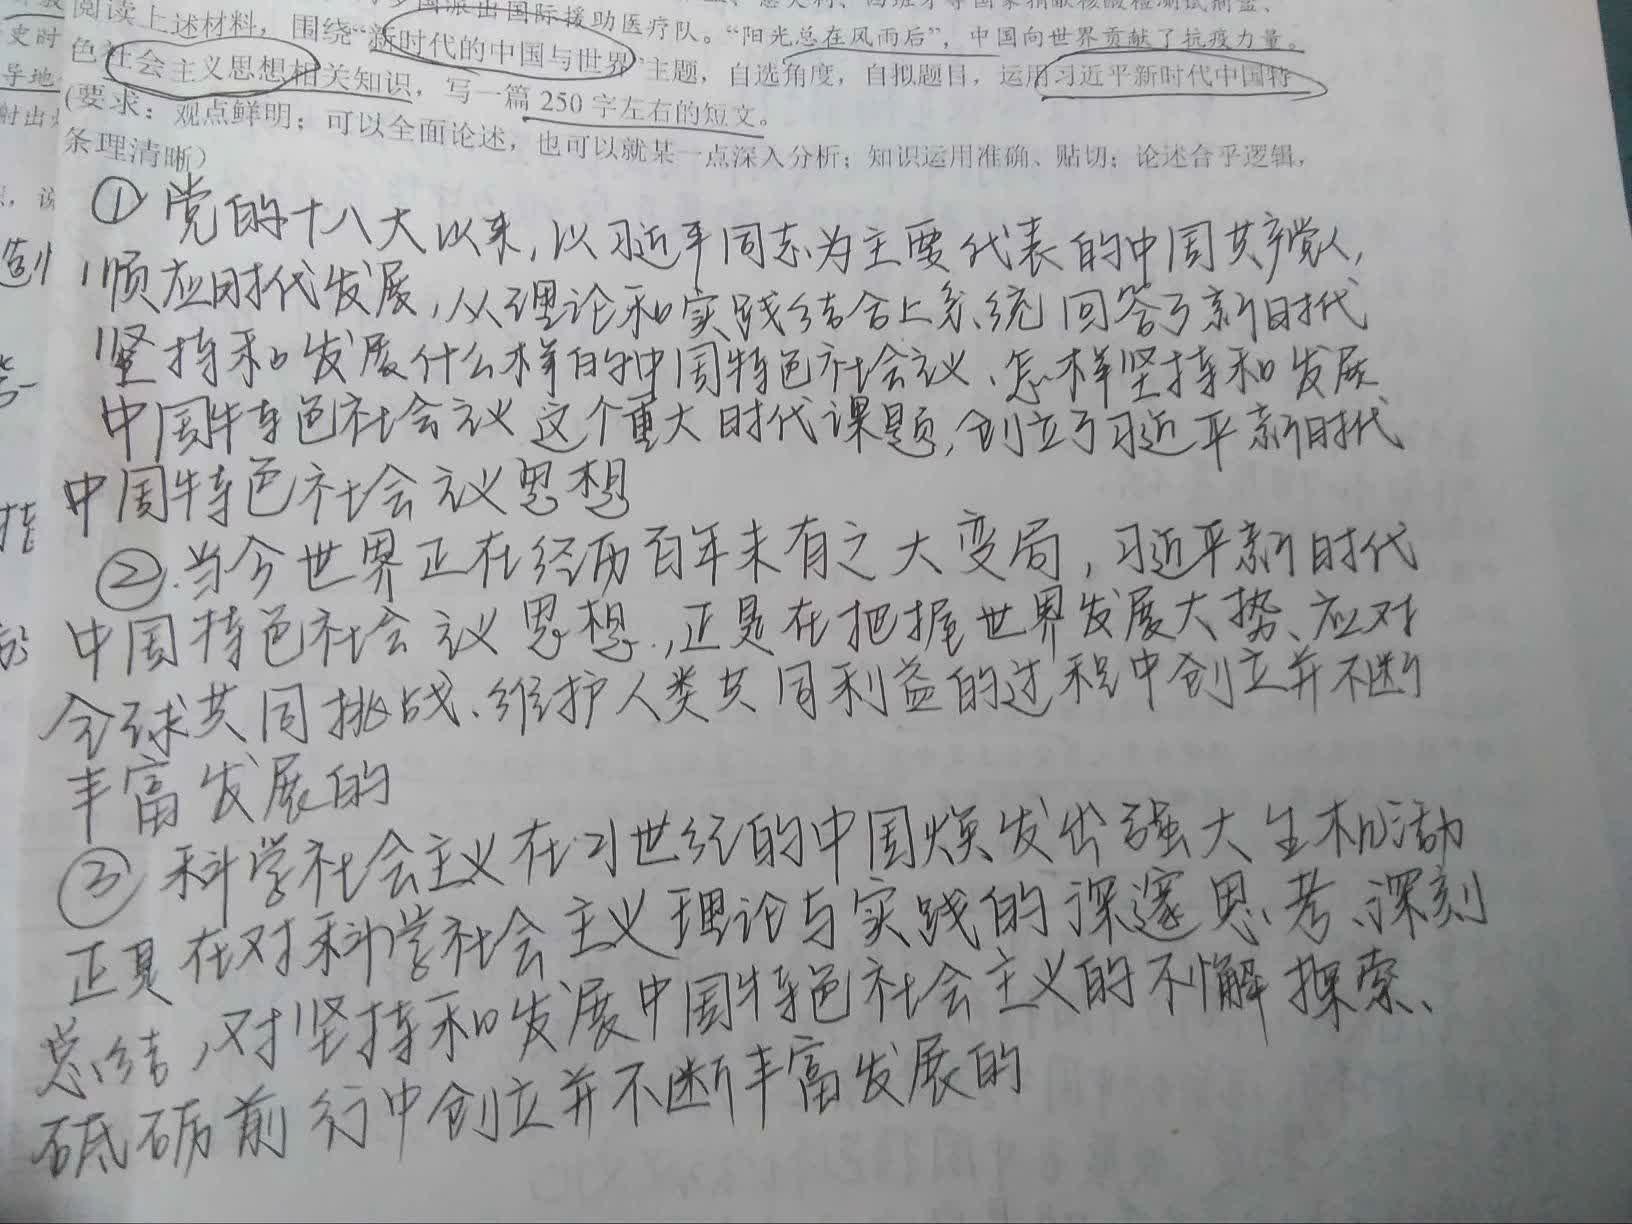 派出国际援助医疗队。“阳光总在风雨后”，中国向世界贡献了抗疫力量。
阅读上述材料，围绕“新时代的中国与世界”主题，自选角度，自拟题目，运用习近平新时代中国特
色社会主义思想相关知识，写一篇 250 字左右的短文。
(要求：观点鲜明；可以全面论述，也可以就某一点深入分析；知识运用准确、贴切；论述合乎逻辑，
条理清晰）
① 党的十八大以来，以习近平同志为主要代表的中国共产党人，
顺应时代发展，从理论和实践结合上系统回答了新时代
坚持和发展什么样的中国特色社会主义、怎样坚持和发展
中国特色社会主义这个重大时代课题，创立了习近平新时代
中国特色社会主义思想
②.当今世界正在经历百年未有之大变局，习近平新时代
中国特色社会主义思想，正是在把握世界发展大势、应对
全球共同挑战、维护人类共同利益的过程中创立并不断
丰富发展的
③ 科学社会主义在21世纪的中国焕发出强大生机活力
正是在对科学社会主义理论与实践的深邃思考、深刻
总结，对坚持和发展中国特色社会主义的不懈探索、
砥砺前行中创立并不断丰富发展的